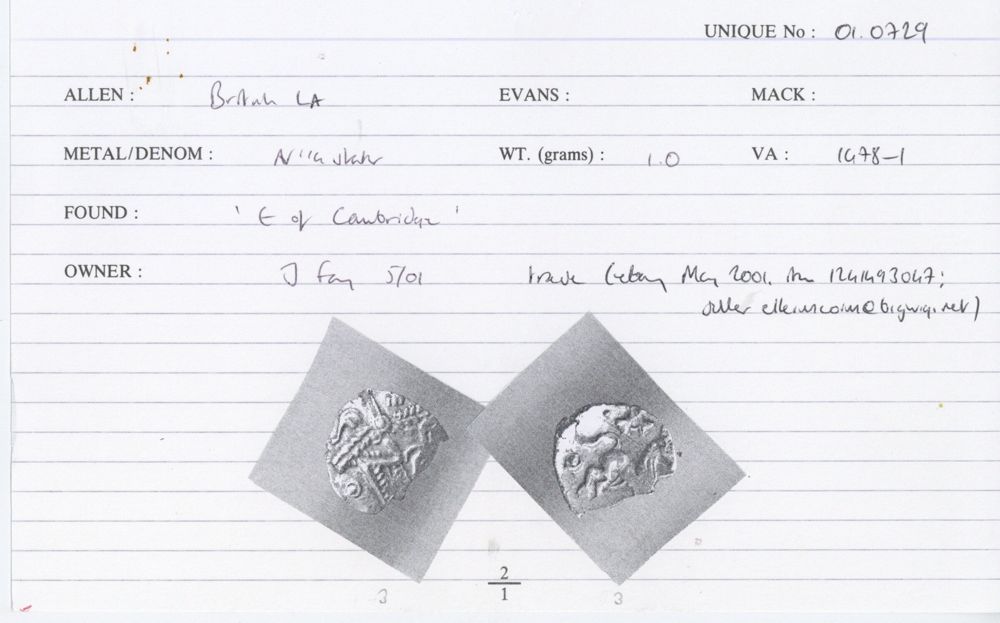 UNIQUE No : 01.0729
ALLEN : British LA EVANS : MACK :
METAL/DENOM : WT. (grams) : 1.0 VA : 1478-1
FOUND : 'E of Cambridge'
OWNER : J Fay 5/01 trade (ebay May 2001. item 1241493047;
seller
2
1
3 3